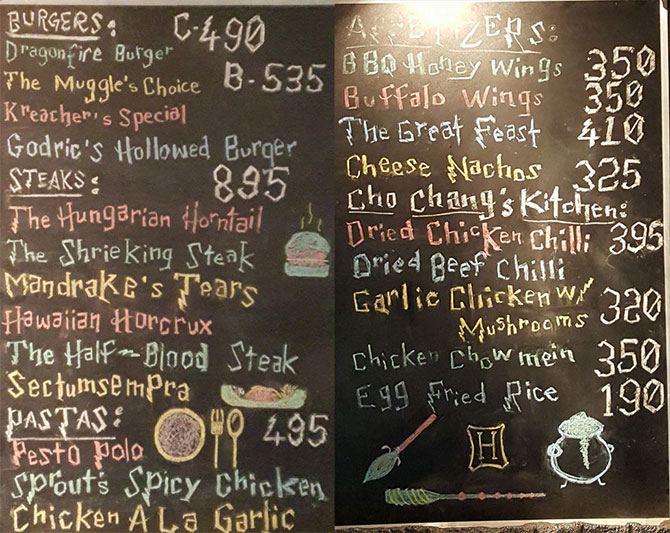 BURGERS: C-490
Dragonfire Burger
The Muggle's Choice B-535
Kreacher's Special
Godric's Hollowed Burger
STEAKS: 895
The Hungarian Horntail
The Shrieking Steak
Mandrake's Tears
Hawaiian Horcrux
The Half-Blood Steak
Sectumsempra
PASTAS: 495
Pesto Polo
Sprouts Spicy Chicken
Chicken A La Garlic
APPETIZERS:
BBQ Honey Wings 350
Buffalo Wings 350
The Great Feast 410
Cheese Nachos 325
Cho Chang's Kitchen:
Dried Chicken Chilli 395
Dried Beef Chilli
Garlic Chicken W/ 320
Mushrooms
Chicken Chowmein 350
Egg Fried Rice 190
H